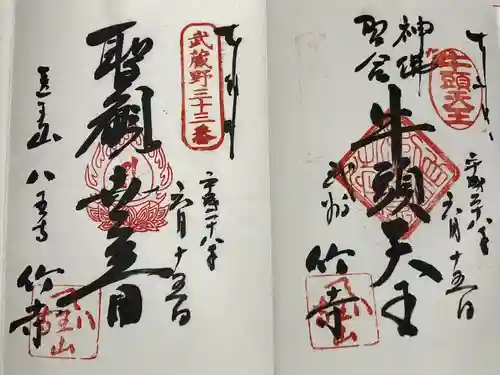 牛頭天王
神佛
習合
牛頭天王
武州
竹寺
平成二十八年
六月十五日
武蔵野三十三番
聖観世音
医王山
八王寺
竹寺
平成二十八年
六月十五日